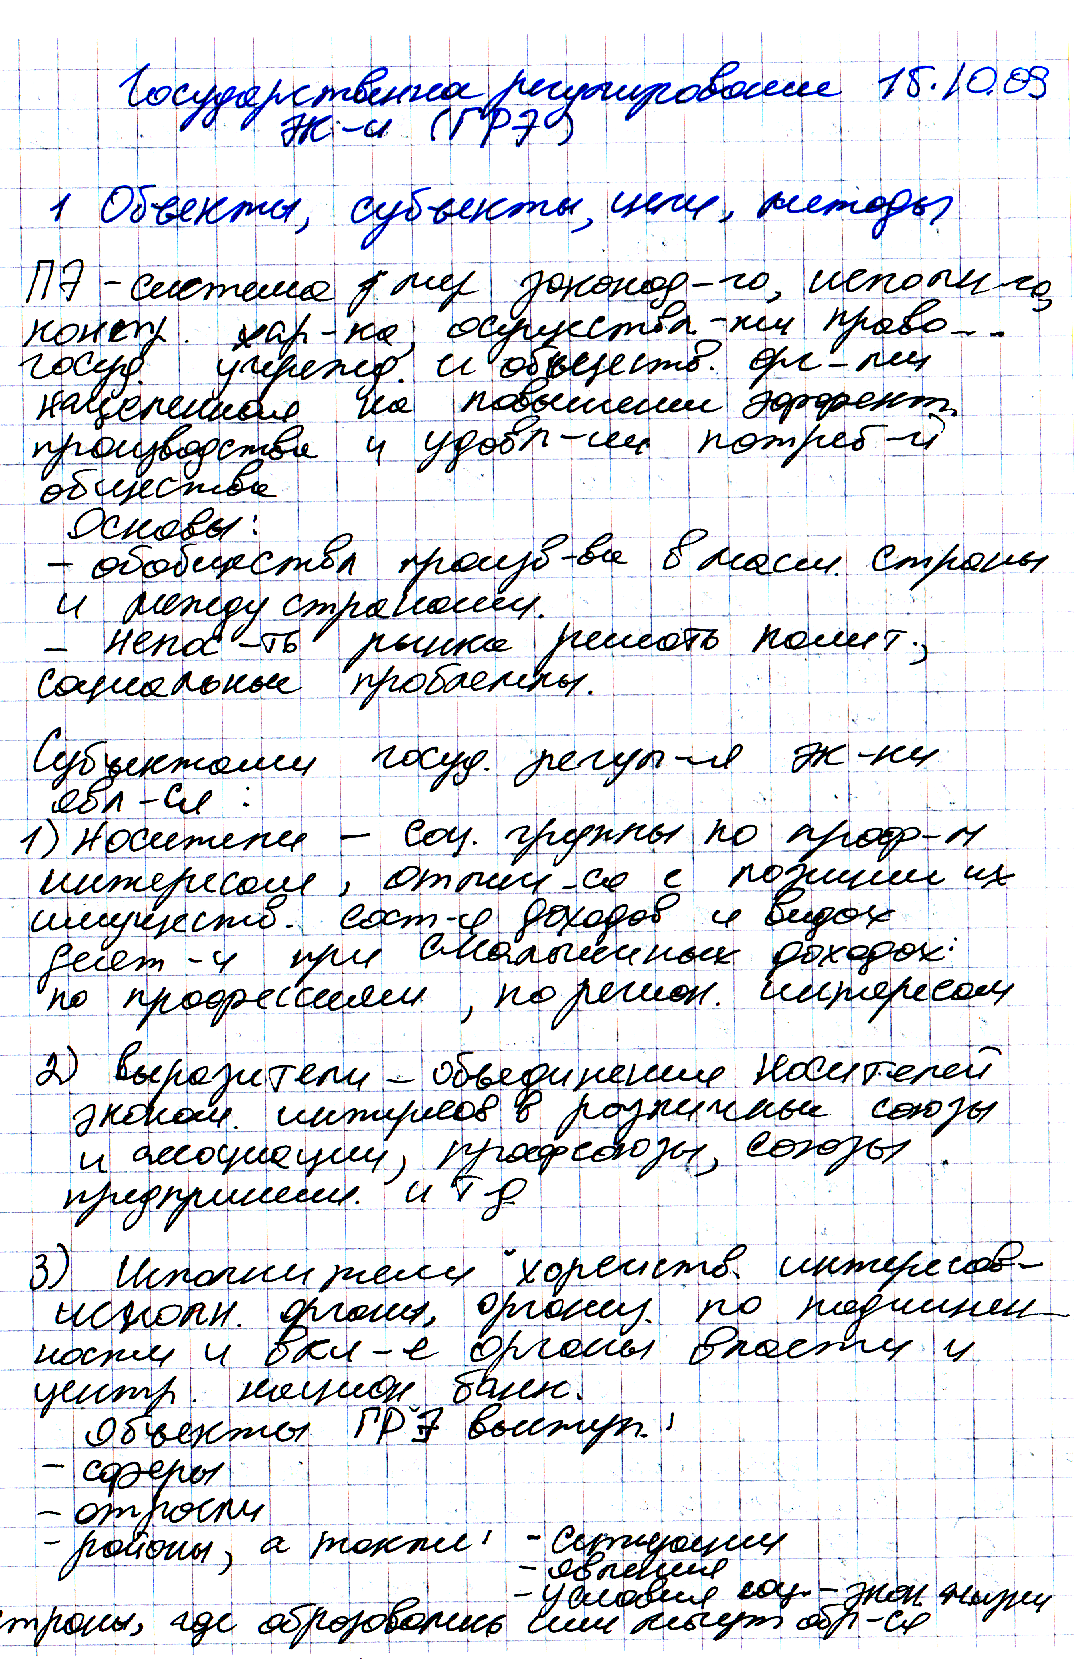 Государственна регулирование 15.10.09
эк-и (ГРЭ)
1 Объекты, субъекты, цели, методы
ПЭ - система мер законод-го, исполн-го,
контр. хар-ка, осуществл-ми право...
госуд. учрежд. и обществ. орг-ми
нацеленная на повышении эффект.
производства и удовл-ии потреб-й
общества
Основы:
- обобществл произв-ва в масш. страны
и между странами.
- непос-ть рынка решать полит.,
социальные проблемы.
Субъектами госуд. регул-я эк-ки
явл-ся:
1) Носители - соц. группы по проф-м
интересам, отлич-ся с позиции их
имуществ. сост-я доходов и видах
деят-и при доходах:
по профессиям, по регион. интересам
2) Выразители - объединение носителей
эконом. интересов в различные союзы
и ассоциации, профсоюзы, союзы
предприним. и т д
3) Исполнители хозяйств. интересов -
исполн. органы, органы. по подчинен-
ности и вкл-е органы власти и
центр. национ банк.
Объекты ГРЭ выступ.:
- сферы
- отрасли
- районы, а также: - ситуации
- явления
- условия соц.- экон жизни
страны, где образовались или могут обр-ся